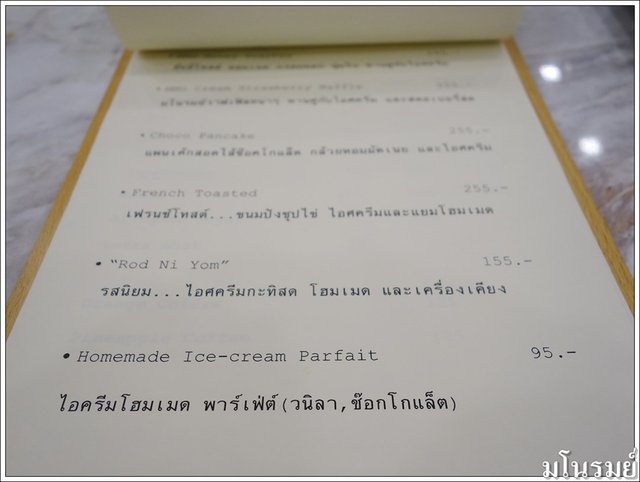 • Choco Pancake 255.-
แพนเค้กสอดไส้ช๊อคโกแล็ต กล้วยหอมผัดเนย และไอศครีม
• French Toasted 255.-
เฟรนช์โทสต์...ขนมปังชุปไข่ ไอศครีมและแยมโฮมเมด
• "Rod Ni Yom" 155.-
รสนิยม...ไอศครีมกะทิสด โฮมเมด และเครื่องเคียง
• Homemade Ice-cream Parfait 95.-
ไอครีมโฮมเมด พาร์เฟ่ต์(วนิลา,ช๊อกโกแล็ต)
มโนรมย์